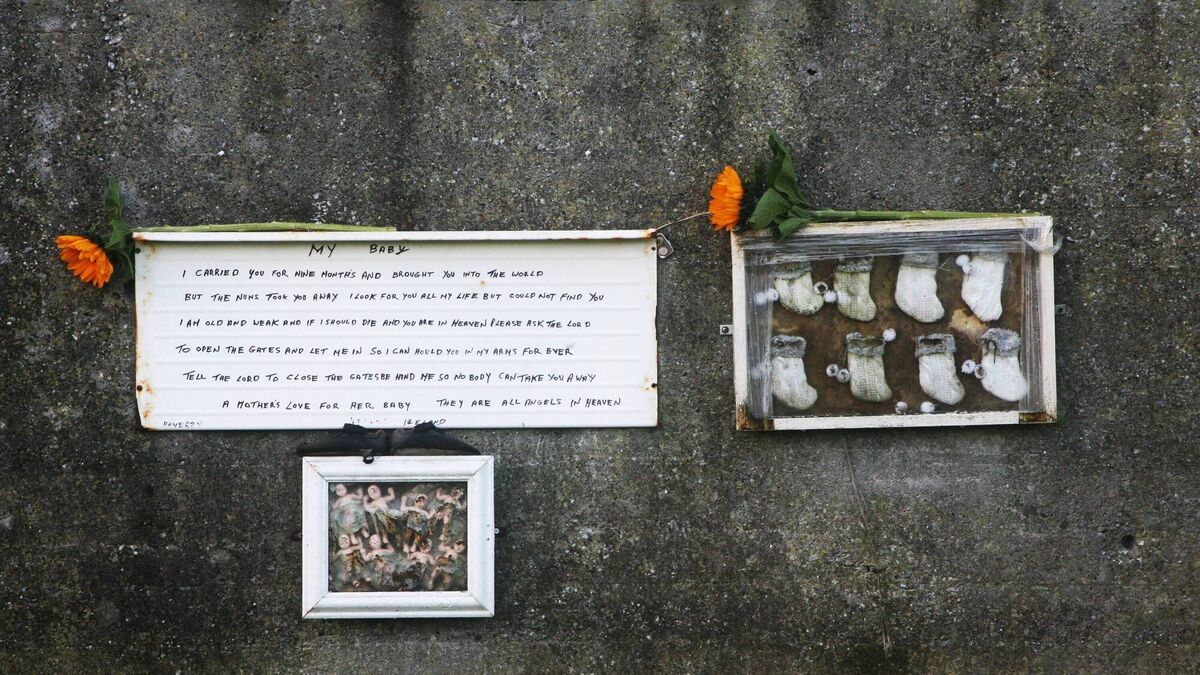 MY BABY
I CARRIED YOU FOR NINE MONTH'S AND BROUGHT YOU INTO THE WORLD
BUT THE NUNS TOOK YOU AWAY I LOOK FOR YOU ALL MY LIFE BUT COULD NOT FIND YOU
I AM OLD AND WEAK AND IF I SHOULD DIE AND YOU ARE IN HEAVEN PLEASE ASK THE LORD
TO OPEN THE GATES AND LET ME IN SO I CAN HOULD YOU IN MY ARMS FOR EVER
TELL THE LORD TO CLOSE THE GATES BE HIND ME SO NO BODY CAN TAKE YOU AWAY
A MOTHER'S LOVE FOR HER BABY THEY ARE ALL ANGELS IN HEAVEN
IRELAND